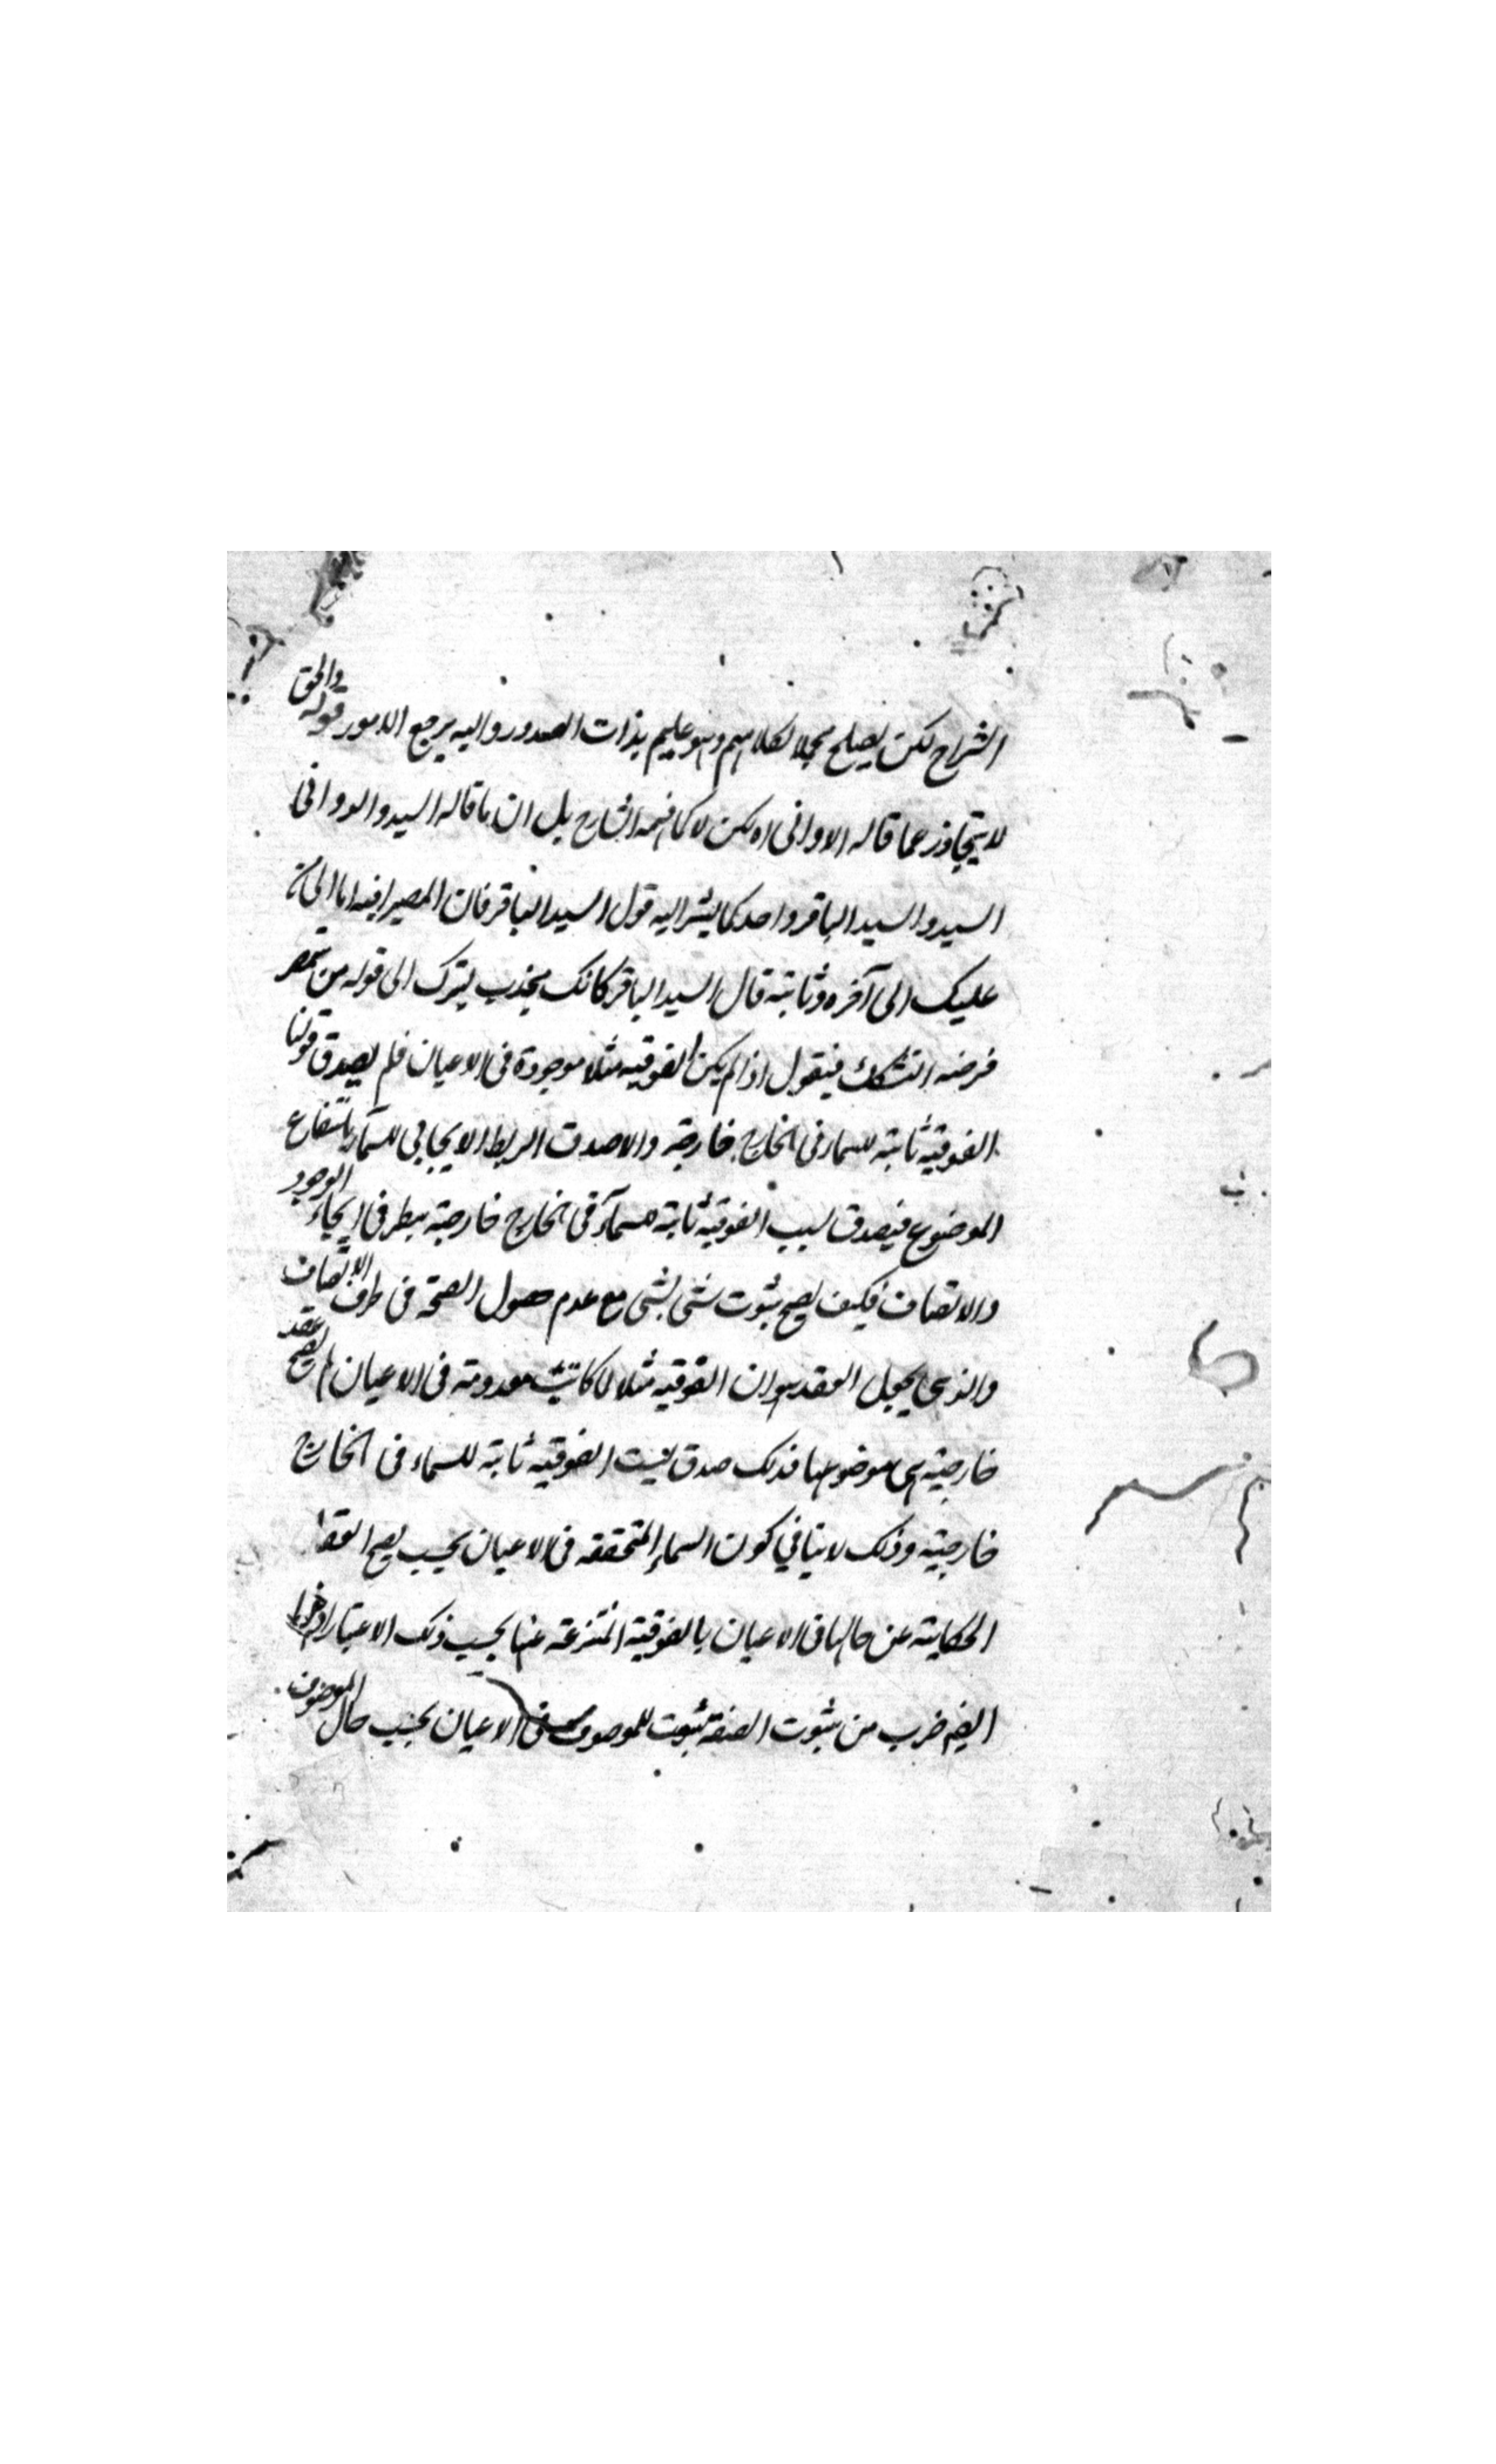 الشراح لكن يصلح محملا لكلامهم وهو عليم بذات الصدور واليه يرجع الامور قوله والحق
لا يتجاوز عما قاله الدوانى اه لكن لا كما فهمه الشارح بل ان ما قاله السيد والدوانى
السيد والسيد الباقر واحد كما يشير اليه قول السيد الباقر فان المصير فيه اما الى
عليك الى آخره وثانيه قال السيد الباقر كانك الى قوله من
فرضه التشكك فيقول اذا لم يكن الفوقيه مثلا موجودة فى الاعيان فلم يصدق قولنا
الفوقية ثابتة للسماء فى الخارج خارجة والا صدق الربط الايجابي للسماء بانتفاع
الموضوع فيصدق ليس الفوقية ثابتة للسماء فى الخارج خارجية الوجود
والاتصاف فكيف يصح ثبوت شئ لشئ مع عدم حصول الصحة فى ظرف الاتصاف
والذى يجعل العقد هو ان الفوقيه مثلا لما كانت معدومة فى الاعيان لم يصح عقد
خارجية هى موضوعها فذلك صدق ليست الفوقيه ثابتة للسماء فى الخارج
خارجية وذلك لا ينافي كون السماء المتحققه فى الاعيان بحيث يصح العقد
الحكاية عن حالها فى الاعيان بالفوقية المنتزعة عنها بحسب ذلك الاعتبار
ايضم ضرب من ثبوت الصفة ثبوت للموصوف فى الاعيان بحسب حال الموصوف